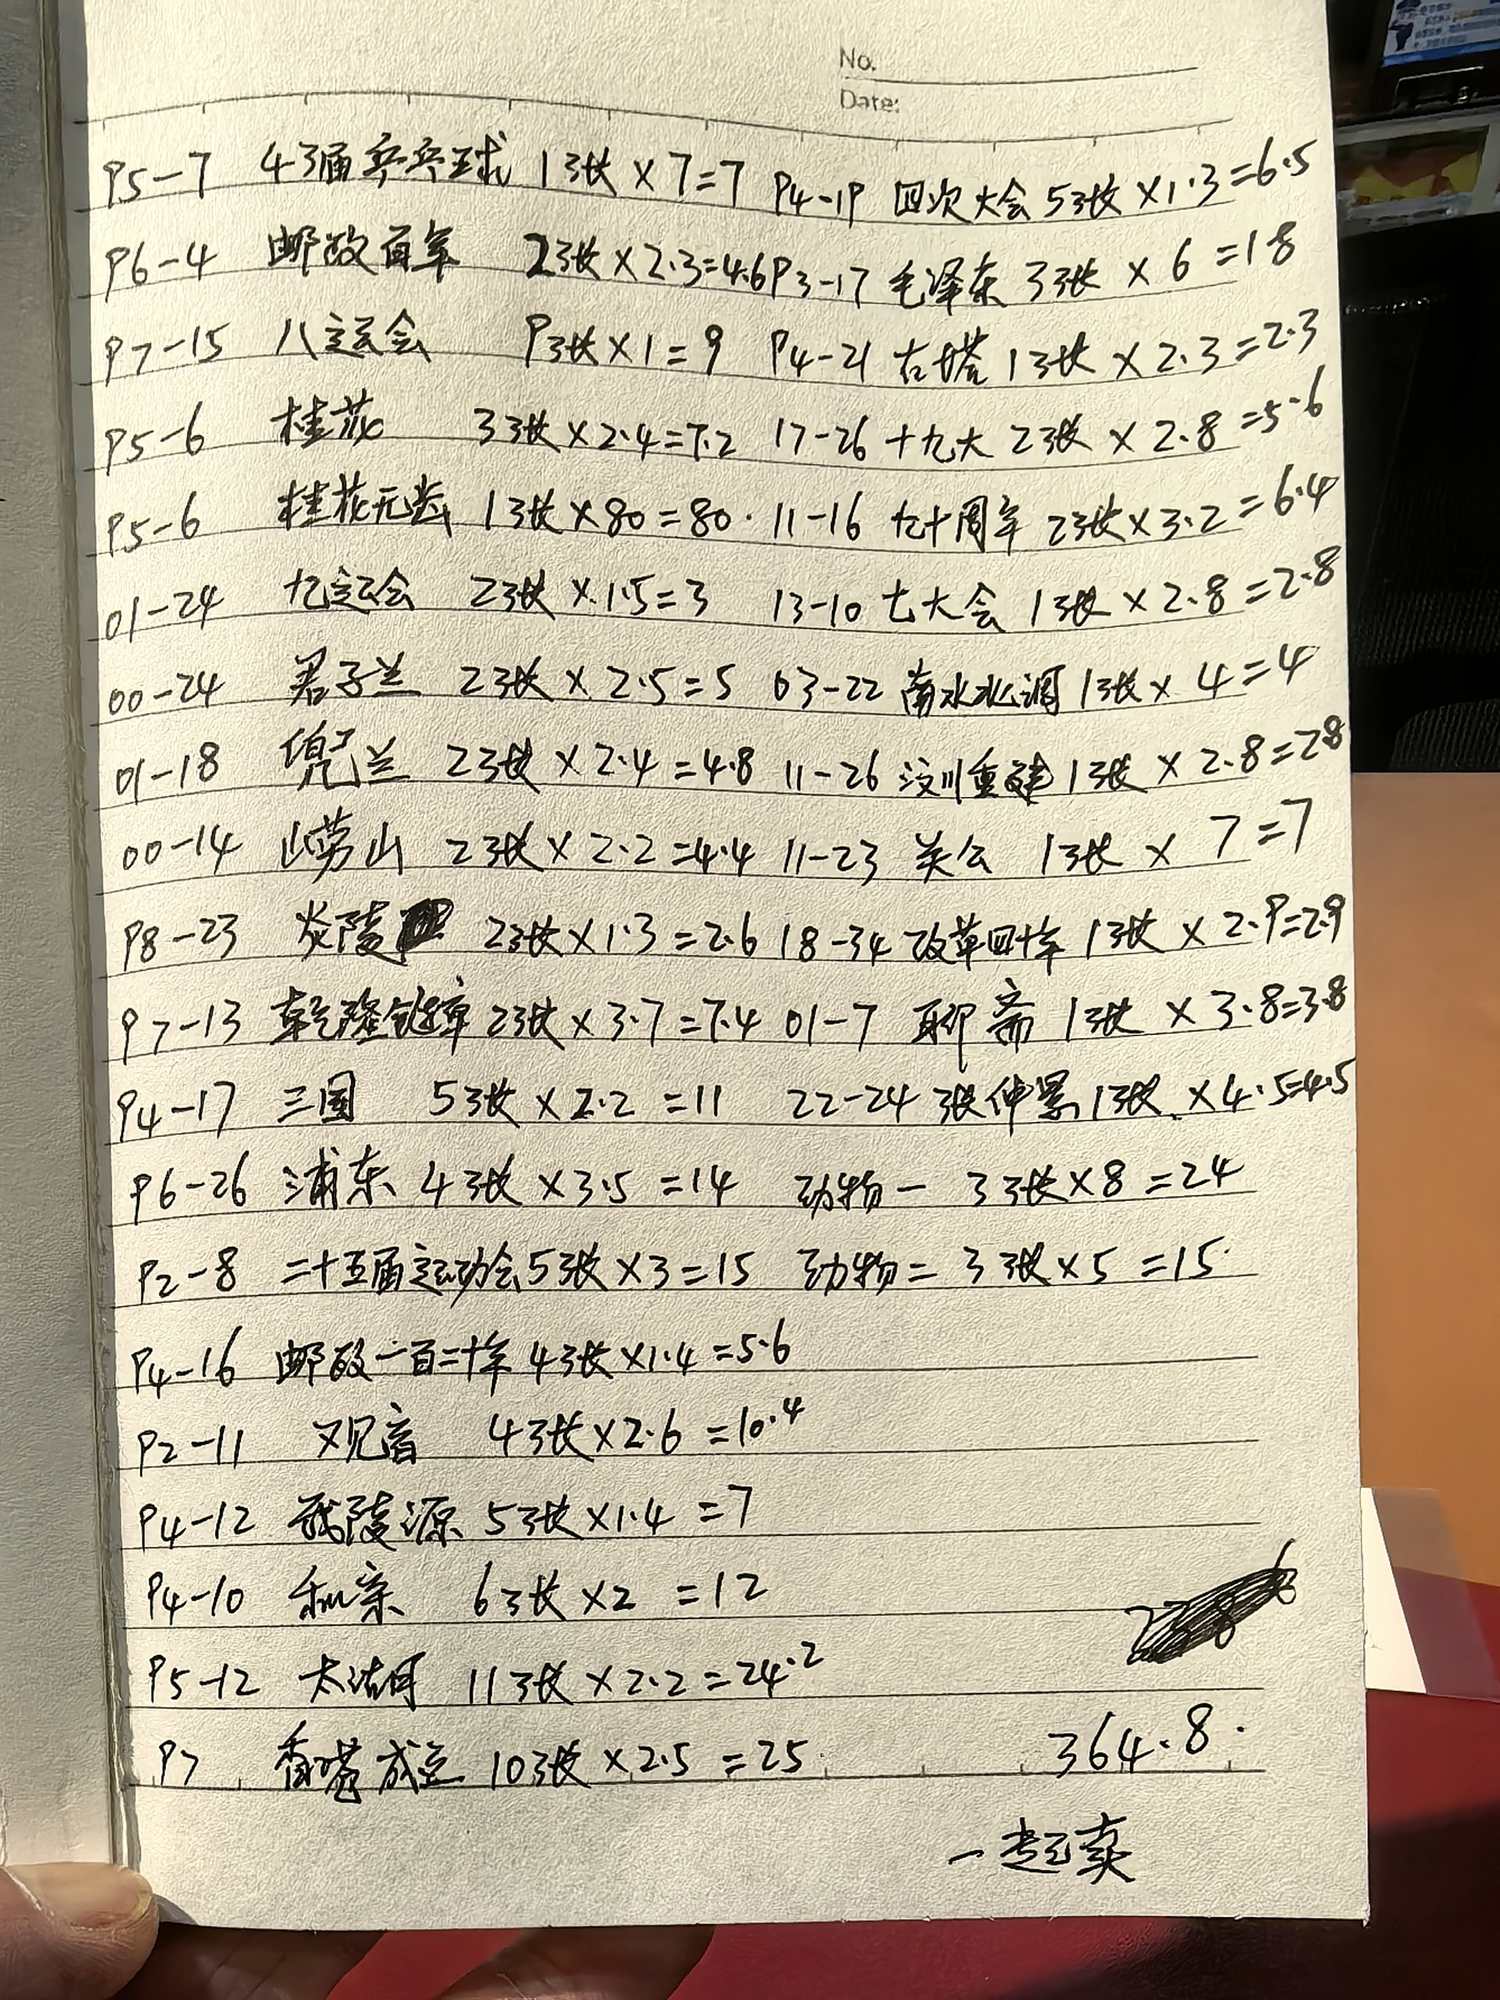 No.
Date:
95-7 43届乒乓球 1张×7=7 94-19 四次大会 5张×1.3=6.5
96-4 邮政百年 2张×2.3=4.6 93-17 毛泽东 3张×6=18
97-15 八运会 9张×1=9 94-21 古塔 1张×2.3=2.3
95-6 桂花 3张×2.4=7.2 17-26 十九大 2张×2.8=5.6
95-6 桂花无齿 1张×80=80. 11-16 九十周年 2张×3.2=6.4
01-24 九运会 2张×1.5=3 13-10 七大会 1张×2.8=2.8
00-24 君子兰 2张×2.5=5 03-22 南水北调 1张×4=4
01-18 兜兰 2张×2.4=4.8 11-26 汶川重建 1张×2.8=2.8
00-14 崂山 2张×2.2=4.4 11-23 关公 1张×7=7
98-23 炎陵 2张×1.3=2.6 18-34 改革四十年 1张×2.9=2.9
97-13 乾隆 2张×3.7=7.4 01-7 聊斋 1张×3.8=3.8
94-17 三国 5张×2.2=11 22-24 张仲景 1张×4.5=4.5
96-26 浦东 4张×3.5=14 动物一 3张×8=24
92-8 二十五届运动会 5张×3=15 动物二 3张×5=15.
94-16 邮政一百二十年 4张×1.4=5.6
92-11 观音 4张×2.6=10.4
94-12 武陵源 5张×1.4=7
94-10 和亲 6张×2=12
95-12 太湖 11张×2.2=24.2
97 香港成立 10张×2.5=25
364.8.
一起卖